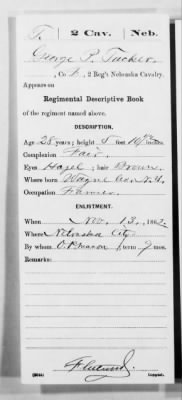 T. 2 Cav. Neb.
George P. Tucker
, Co. , 2 Reg't Nebraska Cavalry.
Appears on
Regimental Descriptive Book
of the regiment named above.
DESCRIPTION.
Age 28 years; height 5 feet inches.
Complexion Fair
Eyes Hazel; hair Brown
Where born Wayne Co. N.Y.
Occupation Farmer
ENLISTMENT.
When Nov. 13, 1862.
Where Nebraska City
By whom O.P. Mason, term 9 mos.
Remarks:
Copyist.